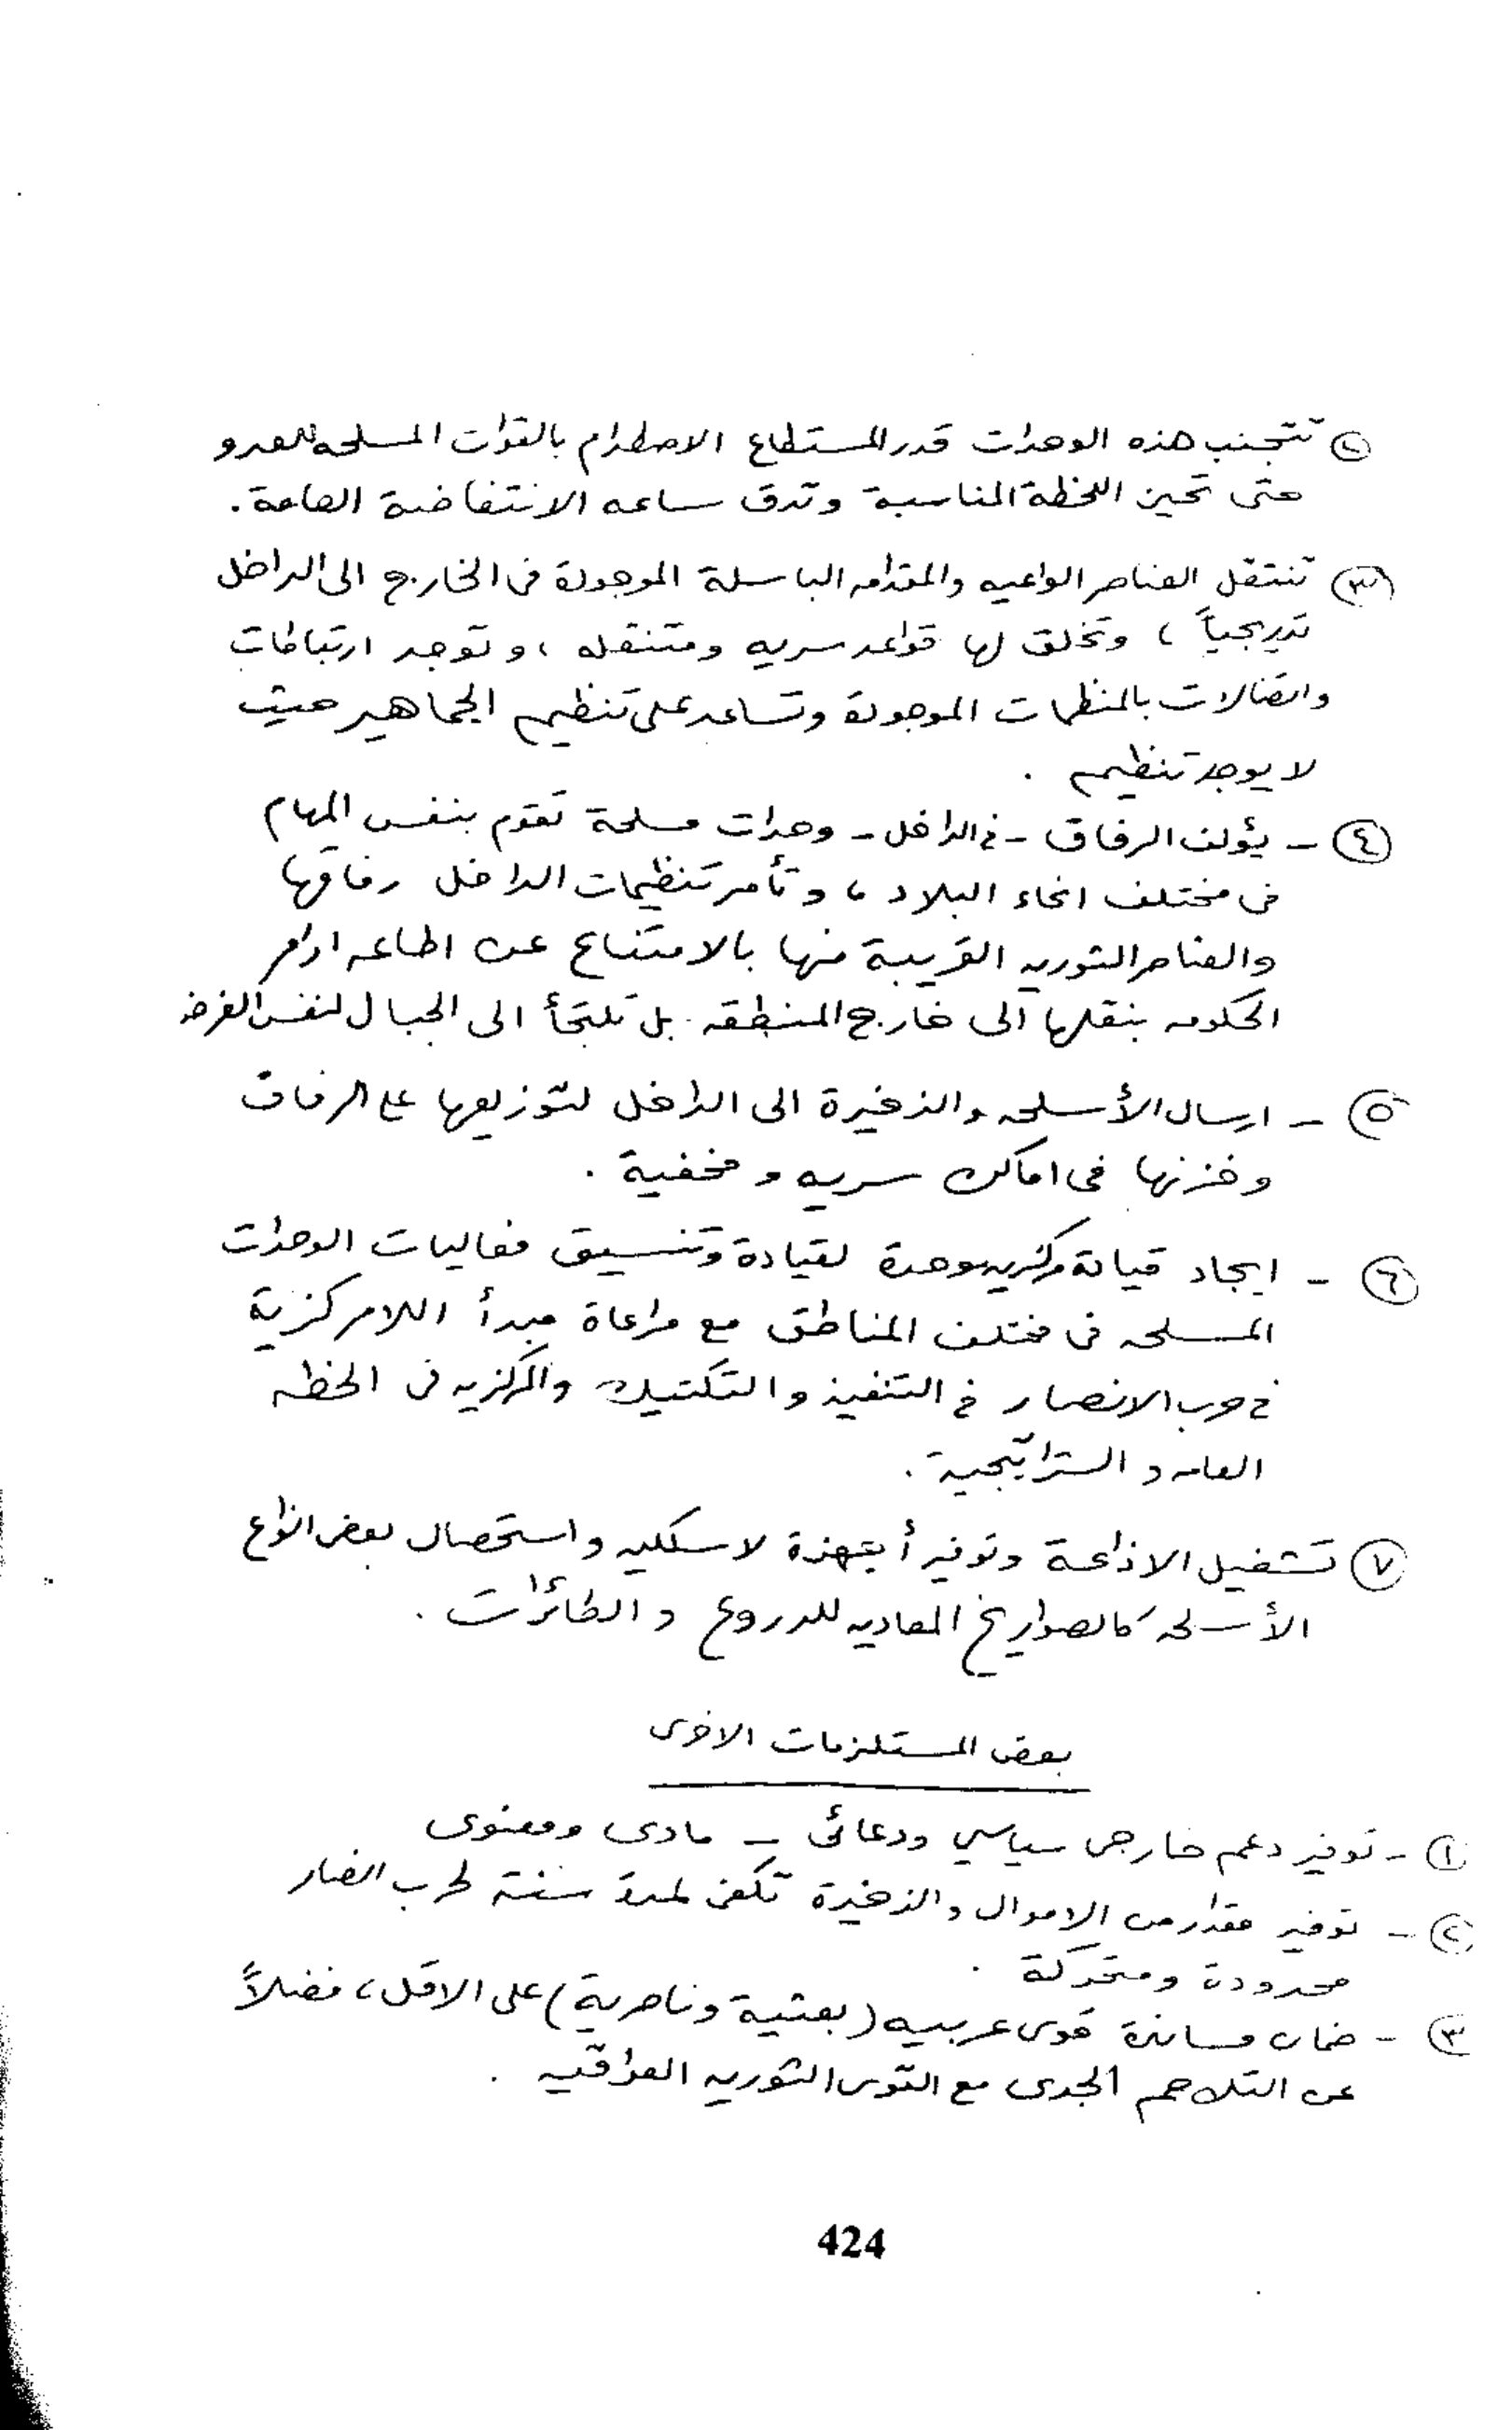 ٢ تتجنب هذه الوحدات قدر المستطاع الاصطدام بالقوات المسلحه للعدو
حتى تحين اللحظة المناسبة وتدق ساعه الانتفاضة العامة .
٣ تنتقل العناصر الواعيه والمقدامه الباسلة الموجودة فى الخارج الى الداخل
تدريجياً ، وتخلق لها قواعد سريه ومتنقله ، وتوجد ارتباطات
واتصالات بالمنظمات الموجودة وتساعد على تنظيم الجماهير حيث
لا يوجد تنظيم .
٤ - يؤلف الرفاق - في الداخل - وحدات مسلحة تقوم بنفس المهام
فى مختلف انحاء البلاد ، وتأمر تنظيمات الداخل رفاقها
والعناصر الثوريه القريبة منها بالامتناع عن اطاعه اوامر
الحكومه بنقلها الى خارج المنطقه بل تلتجأ الى الجبال لنفس الغرض
٥ - ارسال الأسلحه والذخيرة الى الداخل لتوزيعها على الرفاق
وخزنها فى اماكن سريه ومخفية .
٦ - ايجاد قيادة مركزيه موحدة لقيادة وتنسيق فعاليات الوحدات
المسلحه فى مختلف المناطق مع مراعاة مبدأ اللامركزية
في حرب الانصار في التنفيذ والتكتيك والمركزيه فى الخطه
العامه والستراتيجية .
٧ تشغيل الاذاعة وتوفير أجهزة لاسلكيه واستحصال بعض انواع
الأسلحه كالصواريخ المعاديه للدروع والطائرات .
بعض المستلزمات الاخرى
١ - توفير دعم خارجى سياسي ودعائى - مادى ومعنوى
٢ - توفير مقدار من الاموال والذخيرة تكفى لمدة سنة لحرب انصار
محدودة ومتحركة .
٣ - ضمان مساندة قوى عربيه (بعثية وناصرية) على الاقل ، فضلاً
عن التلاحم الجدى مع القوى الثوريه العراقيه .
424